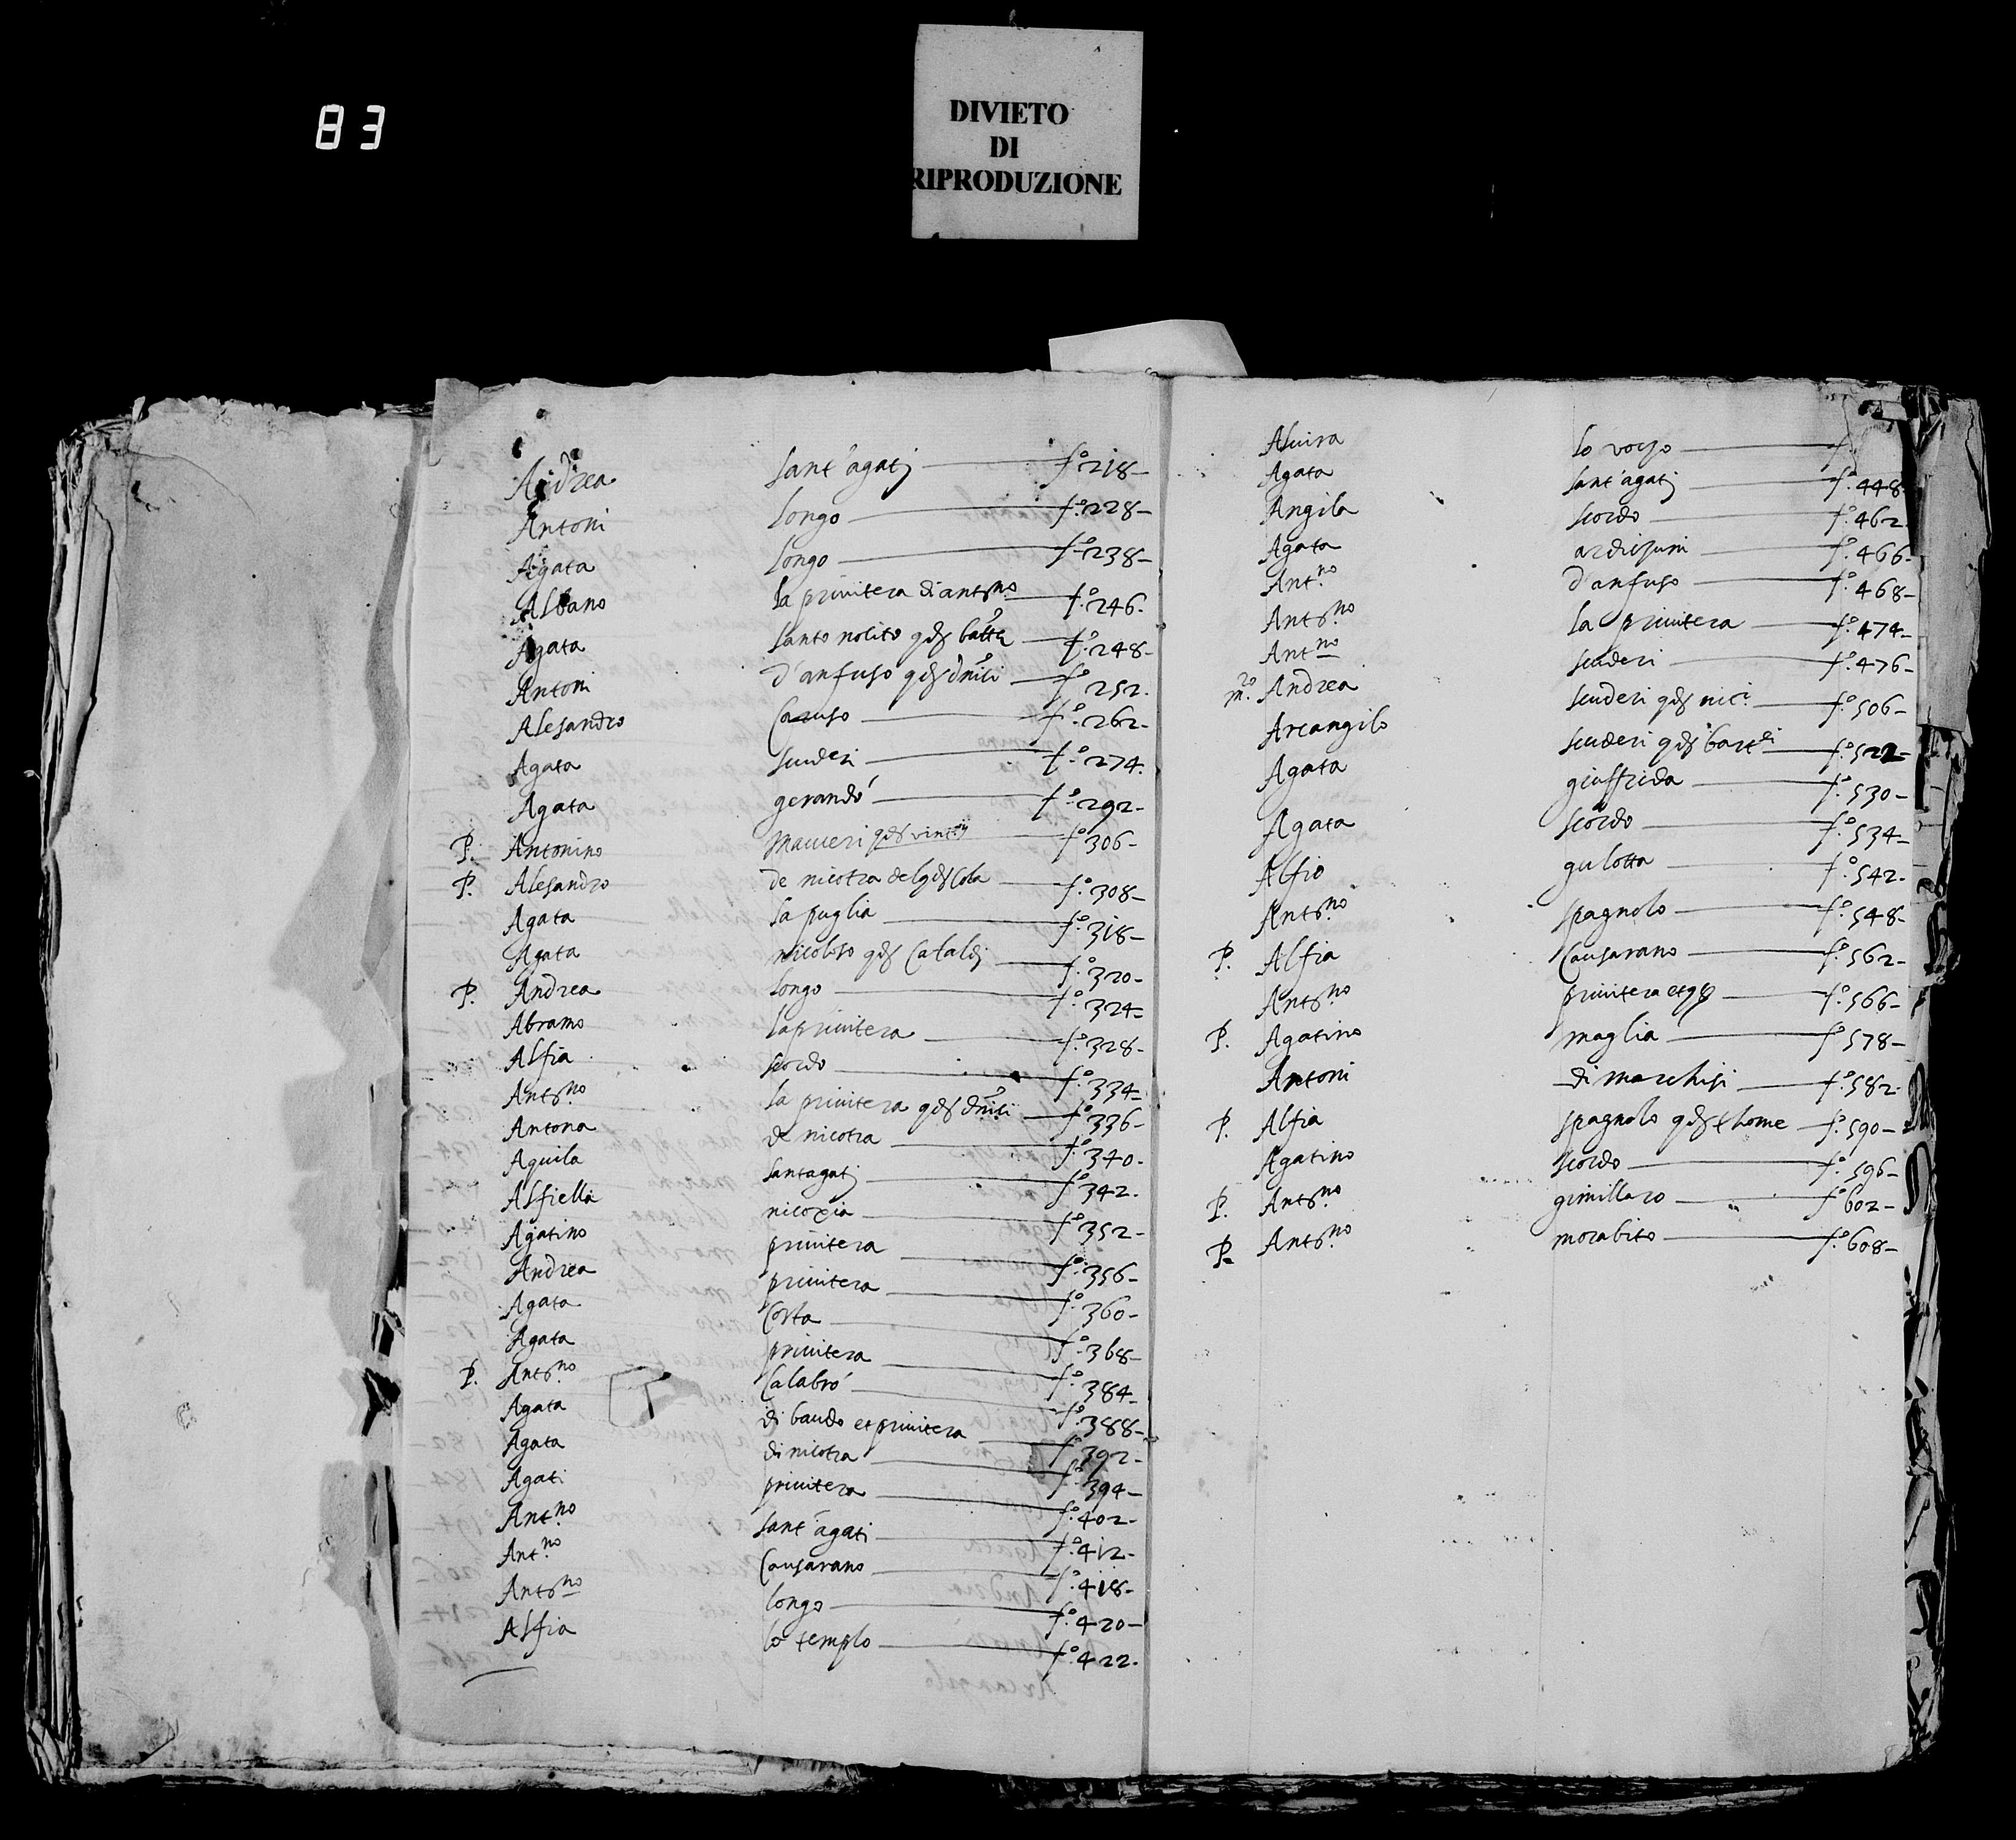 83
DIVIETO
DI
RIPRODUZIONE
Andrea sant'agatj fº 218-
Antoni longo fº 228-
Agata longo fº 238-
Albano la privitera di antº.no fº 246-
Agata santo nolito qds fº 248-
Antoni d'anfuso qds fº 252.
Alesandro Caruso fº 262-
Agata scuderi fº 274.
Agata gerandó fº 292-
P. Antonino Maucieri qds fº 306-
P. Alesandro de nicotra del qds Cola fº 308-
Agata la puglia fº 318-
Agata nicoloso qds Cataldi fº 320-
P. Andrea longo fº 324-
Abramo la privitera fº 328-
Alfia scordo fº 334-
Antº.no la privitera qds fº 336-
Antona de nicotra fº 340-
Aquila santagatj fº 342.
Alfiella nicoxia fº 352-
Agatino privitera fº 356-
Andrea privitera fº 360-
Agata Costa fº 368-
Agata privitera fº 384-
P. Antº.no Calabró fº 388-
Agata di baudo et privitera fº 392-
Agata di nicotra fº 394-
Agati privitera fº 402-
Ant.no sant'agati fº 412-
Ant.no Causarano fº 418-
Antº.no longo fº 420-
Alfia lo templo fº 422-
Aluira lo f
Agata sant'agatj fº 448-
Angila scordo fº 462-
Agata fº 466-
Ant.no d'anfuso fº 468-
Antº.no la privitera fº 474-
Ant.no scuderi fº 476-
m.ro Andrea scuderi qds nic.i fº 506-
Arcangilo scuderi qds fº 522-
Agata giuffrida fº 530-
Agata scordo fº 534-
Alfio gulotta fº 542-
Antº.no spagnolo fº 548-
P. Alfia Causarano fº 562-
Antº.no privitera fº 566-
P. Agatino maglia fº 578-
Antoni di marchisi fº 582-
P. Alfia spagnolo qds thome fº 590-
Agatino scordo fº 596-
P. Antº.no gimillaro fº 602-
P. Antº.no morabito fº 608-